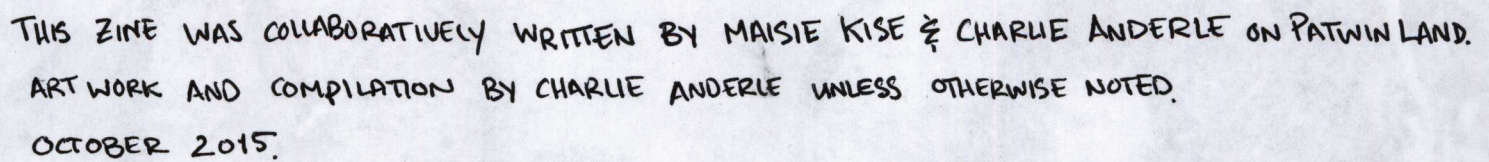 THIS ZINE WAS COLLABORATIVELY WRITTEN BY MAISIE KISE & CHARLIE ANDERLE ON PATWIN LAND.
ART WORK AND COMPILATION BY CHARLIE ANDERLE UNLESS OTHERWISE NOTED.
OCTOBER 2015.